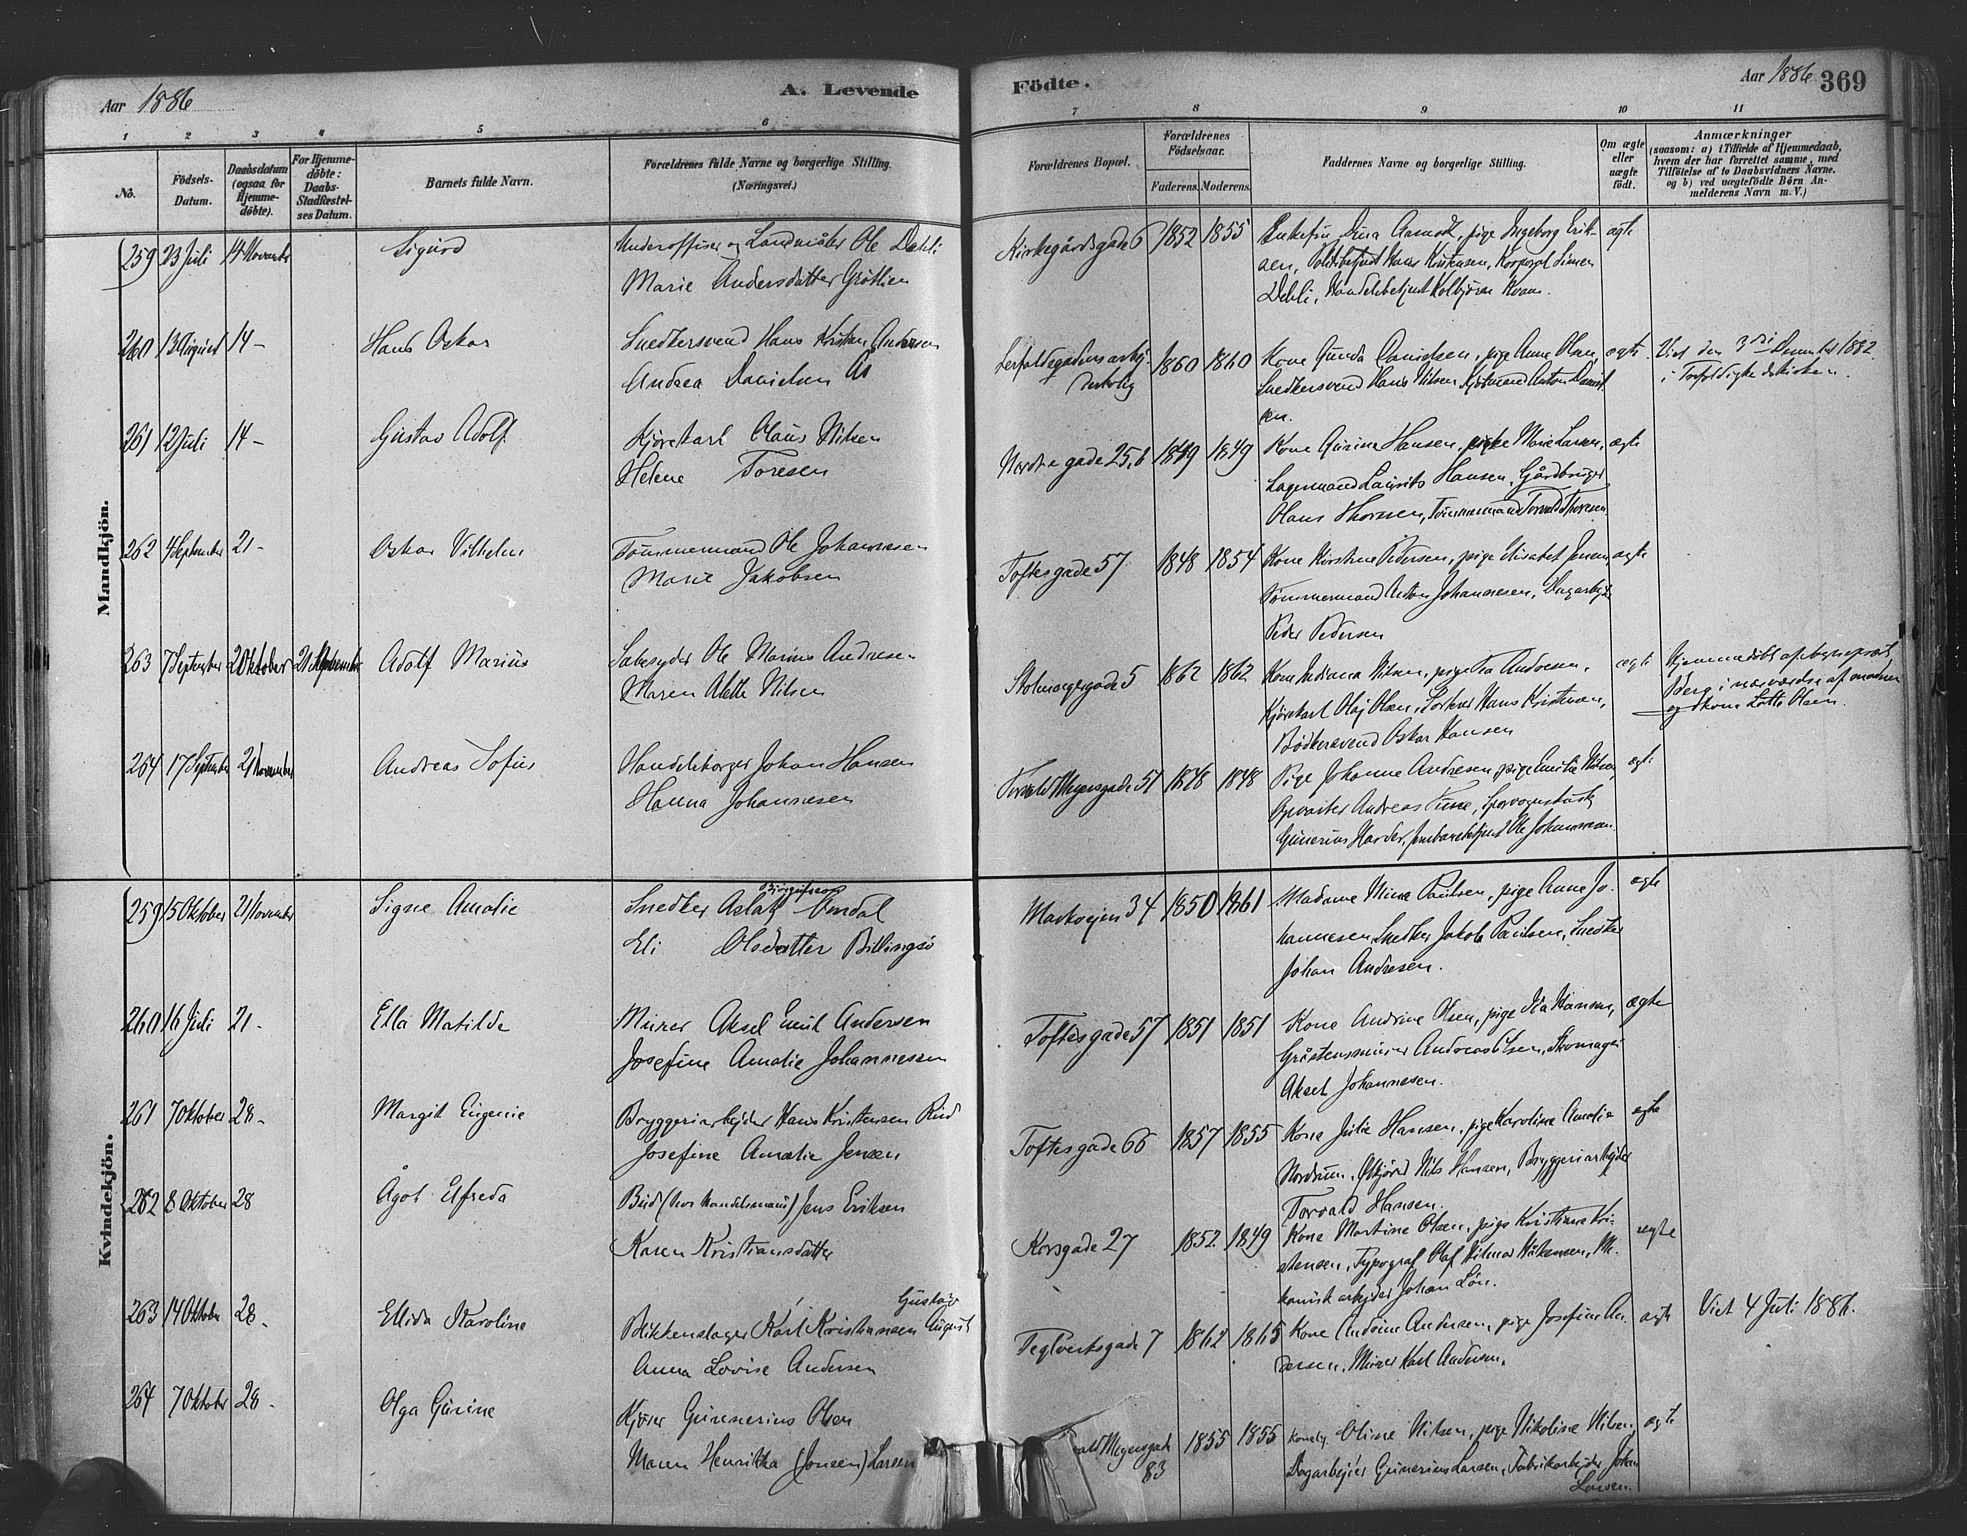 Aar 1886
A. Levende
Födte.
Aar 1886
369
1 2 3 4 5 6 7 8 9 10 11
No.
Födsels-
Datum.
Daabsdatum
(ogsaa for
Hjemme-
döbte).
For Hjemme-
döbte:
Daabs-
Stadfæstel-
ses Datum.
Barnets fulde Navn.
Forældrenes fulde Navne og borgerlige Stilling.
(Næringsvei.)
Forældrenes Bopæl.
Forældrenes
Födselsaar.
Faderens. Moderens.
Faddernes Navne og borgerlige Stilling.
Om ægte
eller
uægte
födt.
Anmærkninger
(saasom: a) i Tilfælde af Hjemmedaab,
hvem der har forrettet samme, med
Tilföielse af to Daabsvidners Navne.
og b) ved uægtefödte Börn An-
melderens Navn m. V.)
Mandkjön.
259 23 Juli 14 November Sigurd Underofficer og Landmåler Ole Dehli
Marie Andersdatter Gröttien
Kirkegårdsgade 6 1852 1855 Enkefru Aamodt, pige Ingeborg Erik-
sen, Politibetjent Hans Kristensen, Korporal Simen
Dehli, Handelsbetjent Kolbjörn Kvam. ægte
260 13 August 14 - Hans Oskar Snedkersvend Hans Kristian Andersen
Andrea Danielsen Ås
1860 1860 Kone Gunda Danielsen, pige Anne Olsen,
Snedkersvend Hans Nilsen, Anton Daniel
sen. ægte
Viet den 3die December 1882
i Trefoldighedskirken.
261 12 Juli 14 - Gustav Adolf Kjörekarl Olaus Nilsen
Helene Toresen
Nordre gade 25,b 1849 1849 Kone Gurine Hansen, pige Marie Larsen,
Lagermand Laurits Hansen, Gårdbruger
Olaus Thoresen, Tömmermand Torvald Thoresen ægte
262 4 September 21 - Oskar Vilhelm Tömmermand Ole Johannesen
Marie Jakobsen
Toftesgade 57 1848 1854 Kone Kirstine Pedersen, pige Elisabet Jensen,
Tömmermand Anton Johannesen,
Peder Pedersen ægte
263 7 September 2 Oktober 21 September Adolf Marius Ole Marius Andresen
Maren Alette Nilsen
Stolmagergade 5 1862 1862 Kone Indiana Nilsen, pige Andresen,
Kjörekarl Olaj Olsen, Hans Kristensen,
Bödkersvend Oskar Hansen ægte
Hjemmedöbt af
Berg i nærværelse af moderen
og kone Lotte Olsen.
264 17 September 21 November Andreas Sofus Handelsborger Johan Hansen
Hanna Johannesen
Torvald Meyersgade 51 1848 1848 Pige Johanne Andresen, pige Emilie Nilsen,
Opvarter Andreas
Gunerius Harder, Jernbanebetjent Ole Johannesen. ægte
Kvindekjön.
259 5 Oktober 21 November Signe Amalie Snedker Aslak Björgufsen Omdal
Eli Olsdatter Billingsö
Markvejen 34 1850 1861 Madame Mina Paulsen, pige Anne Jo-
hannesen, Snedker Jakob Paulsen, Snedker
Johan Andresen. ægte
260 16 Juli 21 - Ella Matilde Murer Aksel Emil Andersen
Josefine Amalie Johannessen
Toftesgade 57 1851 1851 Kone Andrine Olsen, pige Ida Hansen,
Gråstensmurer Andreas Olsen, Skomager
Aksel Johannesen. ægte
261 7 Oktober 28 - Margit Eugenie Bryggeriarbejder Hans Kristensen Rud
Josefine Amalie Jensen
Toftesgade 66 1857 1855 Kone Julie Hansen, pige Karoline Amalie
Nordrum, Nils Hansen, Bryggeriarbejder
Torvald Hansen. ægte
262 8 Oktober 28 Ågot Elfreda Bud (hos Handelsmand) Jens Eriksen
Karen Kristiansdatter
Korsgade 27 1852 1849 Kone Martine Olsen, pige Kristiane Kri-
stensen, Typograf Olaf Hilmar Håkensen, Me-
kanisk arbejder Johan Lön. ægte
263 14 Oktober 28 - Ellida Karoline Blikkenslager Karl Kristiansen Gustav August
Anna Lovise Andersen
Teglverksgade 7 1862 1865 Kone Andrine Andersen, pige Josefine An-
dersen, Murer Karl Andersen. ægte
Viet 4 Juli 1886.
264 7 Oktober 28 - Olga Gurine Kjörer Gunnerius Olsen
Maren Henrikka (Jonsen) Larsen
ald Meyersgade
83 1855 1855 Oline Nilsen, pige Nikoline Nilsen,
Dagarbejder Gunerius Larsen, Fabrikarbejder Johan
Larsen. ægte